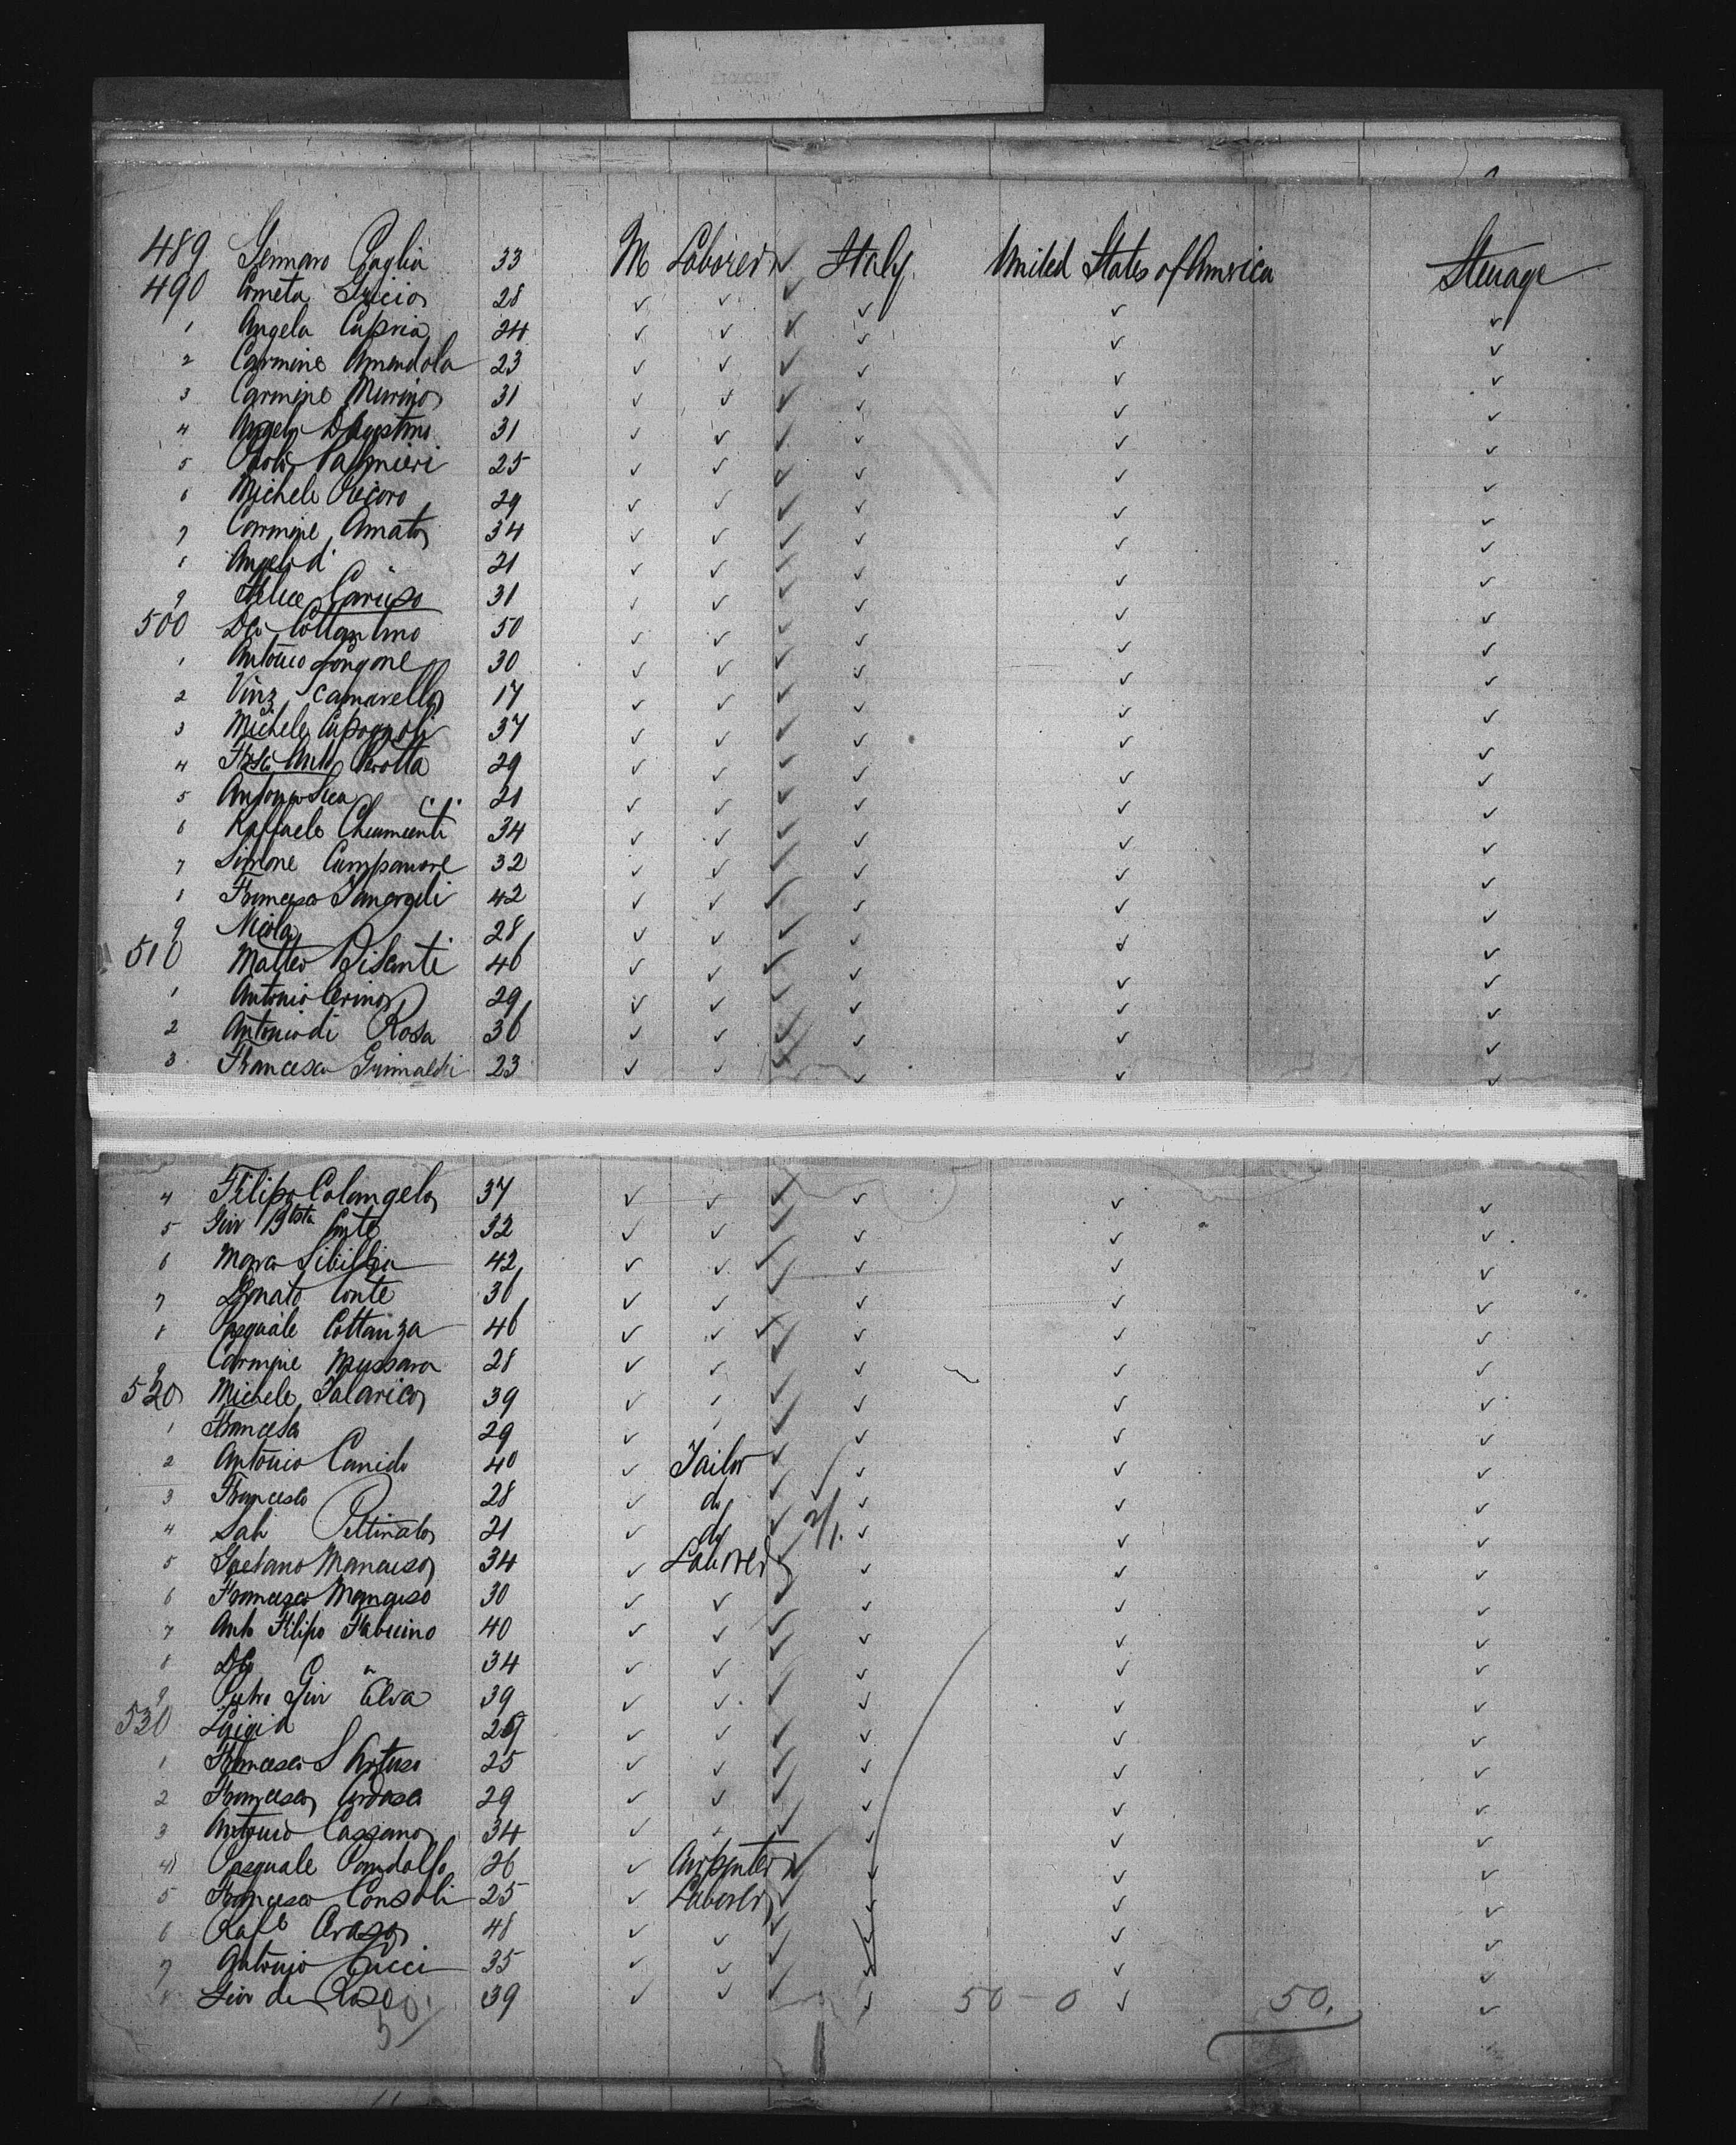 489 Gennaro Paglia 33 M Laborer Italy United States of America Steerage
490 Cometa 28
1 Angela Cupria 24
2 Carmine Amendola 23
3 Carmine Murino 31
4 Angelo D'Agostino 31
5 Palmieri 25
6 Michele Pecoro 29
7 Carmine Amato 34
8 Angelo d' " 21
9 Felice Caruso 31
500 Do Cottantino 50
1 Antonio Longone 30
2 Vinz Scamarella 17
3 Michele Capognoli 37
4 Fsco Anto Perotta 29
5 Antonio Sica 21
6 Raffaele Cheumienti 34
7 Simone Campanore 32
8 Francesco 42
9 Nicola 28
510 Matteo Pisanti 46
1 Antonio Cerino 29
2 Antonio di Rosa 36
3 Francesco Grimaldi 23
4 Filipo Colangelo 37
5 Giov Btsta Conte 32
6 Sibillia 42
7 Donato Conte 36
8 Pasquale Cottanza 46
9 Carmine Mussara 28
520 Michele Talarico 39
1 Francesco 29
2 Antonio Canido 40 Tailor
3 Francesco 28 do
4 Sah Pettinato 21 do 2/1.
5 Gaetano Mancuso 34 Laborer
6 Francesco Mancuso 30
7 Anto Filipo Fabiino 40
8 Do " 34
9 Pietro Giov Elva 39
530 Luigi d 29
1 Francesco S Artuso 25
2 Francesco 29
3 Antonio Cassano 34
4 Pasquale Pandolfo 26 Carpenter
5 Francesco Consoli 25 Laborer
6 Rafe Eraso 48
7 Antonio Cucci 35
8 Giov de Rosa 39 50 - 0 50.
50